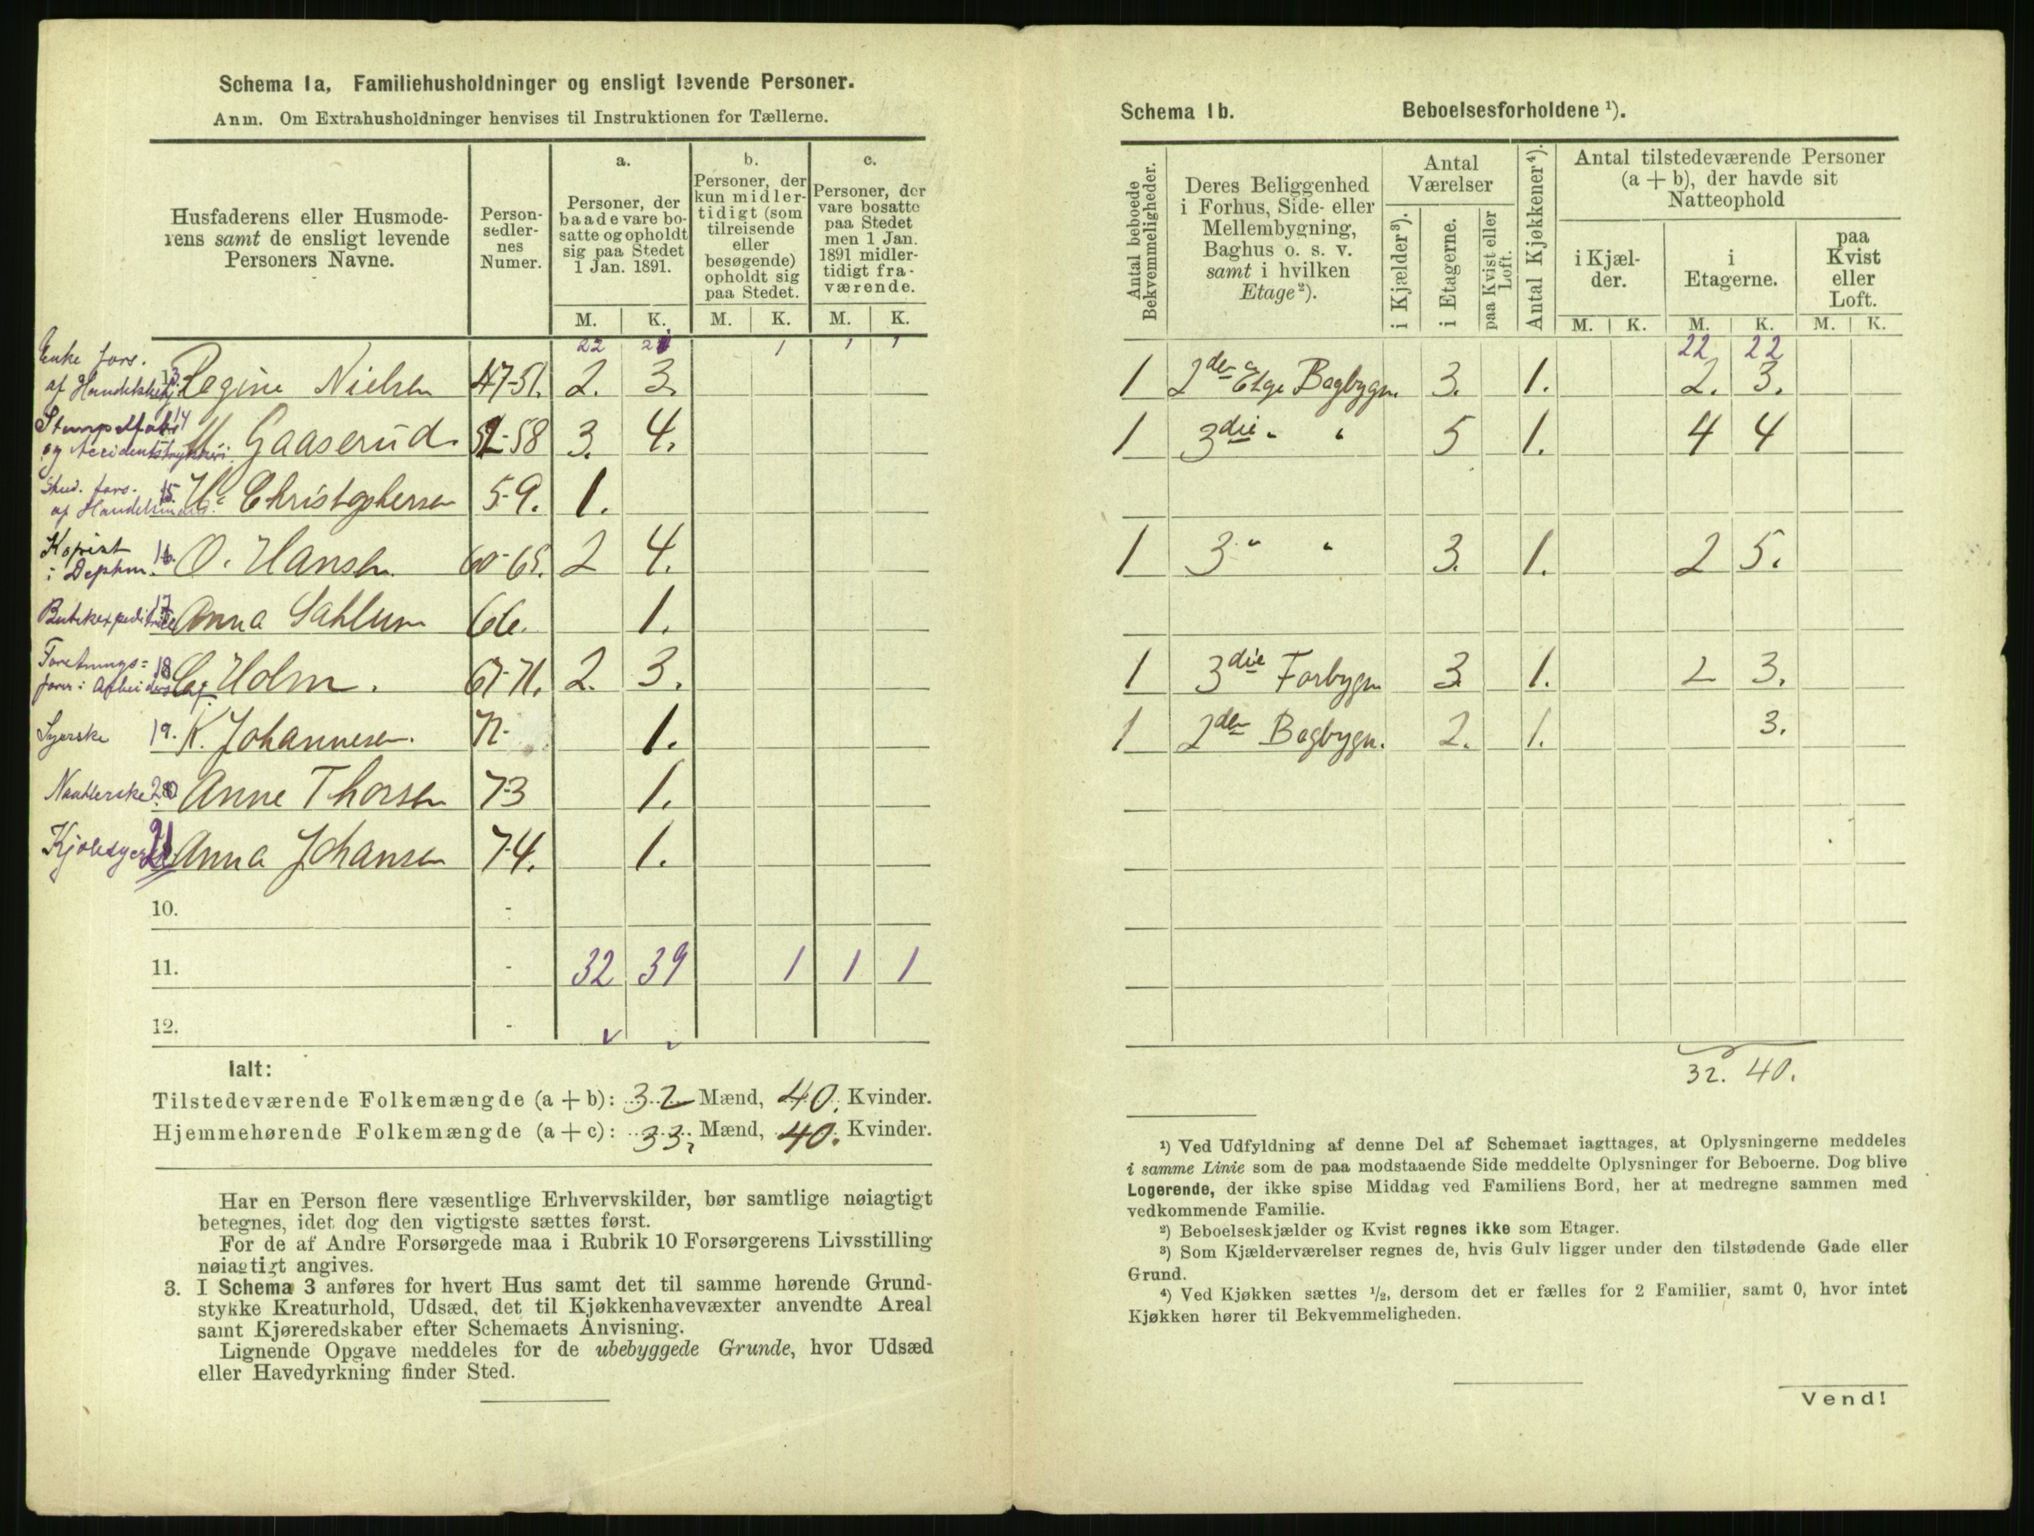 Schema 1a, Familiehusholdninger og ensligt levende Personer.
Anm. Om Extrahusholdninger henvises til Instruktionen for Tællerne.
Husfaderens eller Husmode-
rens samt de ensligt levende
Personers Navne.
Person-
sedler-
nes
Numer.
a.
Personer, der
baade vare bo-
satte og opholdt
sig paa Stedet
1 Jan. 1891.
b.
Personer, der
kun midler-
tidigt (som
tilreisende
eller
besøgende)
opholdt sig
paa Stedet.
c.
Personer, der
vare bosatte
paa Stedet
men 1 Jan.
1891 midler-
tidigt fra-
værende.
M. K. M. K. M. K.
22 1 1 1
Enke fors.
af Handelsbetj. 13. Regine Nielsen 47-51. 2. 3.
Stempelfabr.
og Accidentstrykkeri 14 M Gaaserud 52-58 3. 4.
Stud. fors.
af Handelsmand. 15. H. Christophersen 59. 1.
Kopist
i Dephm. 16. O. Hansen 60-65. 2 4.
17 Anna Sahlum 66. 1.
Forretnings-
fører i Arbeiders 18 C. Holm. 67-71. 2. 3.
Syerske 19. K. Johannesen. 72. 1.
20 Anne Thorsen 73 1.
Kjolesyerske 21 Anna Johansen 74. 1.
10. -
11. - 32 39 1 1 1
12. -
Ialt:
Tilstedeværende Folkemængde (a + b): 32 Mænd, 40. Kvinder.
Hjemmehørende Folkemængde (a + c): 33. Mænd, 40. Kvinder.
Har en Person flere væsentlige Erhvervskilder, bør samtlige nøiagtigt
betegnes, idet dog den vigtigste sættes først.
For de af Andre Forsørgede maa i Rubrik 10 Forsørgerens Livsstilling
nøiagtigt angives.
3. I Schema 3 anføres for hvert Hus samt det til samme hørende Grund-
stykke Kreaturhold, Udsæd, det til Kjøkkenhavevæxter anvendte Areal
samt Kjøreredskaber efter Schemaets Anvisning.
Lignende Opgave meddeles for de ubebyggede Grunde, hvor Udsæd
eller Havedyrkning finder Sted.
Schema 1b. Beboelsesforholdene ¹).
Antal beboede
Bekvemmeligheder.
Deres Beliggenhed
i Forhus, Side- eller
Mellembygning,
Baghus o. s. v.
samt i hvilken
Etage²).
Antal
Værelser
i Kjælder³).
i Etagerne.
paa Kvist eller
Loft.
Antal Kjøkkener⁴).
Antal tilstedeværende Personer
(a + b), der havde sit
Natteophold
i Kjæl-
der.
i
Etagerne.
paa
Kvist
eller
Loft.
M. K. M. K. M. K.
22 22
1 2den Etge Bagbygn. 3. 1. 2. 3.
1 3die " " 5 1. 4 4
1 3 " " 3. 1. 2 5.
1 3die Forbygn 3. 1. 2 3.
1 2den Bagbygn. 2. 1. 3.
32. 40.
¹) Ved Udfyldning af denne Del af Schemaet iagttages, at Oplysningerne meddeles
i samme Linie som de paa modstaaende Side meddelte Oplysninger for Beboerne. Dog blive
Logerende, der ikke spise Middag ved Familiens Bord, her at medregne sammen med
vedkommende Familie.
²) Beboelseskjælder og Kvist regnes ikke som Etager.
³) Som Kjælderværelser regnes de, hvis Gulv ligger under den tilstødende Gade eller
Grund.
⁴) Ved Kjøkken sættes ½, dersom det er fælles for 2 Familier, samt 0, hvor intet
Kjøkken hører til Bekvemmeligheden.
Vend!